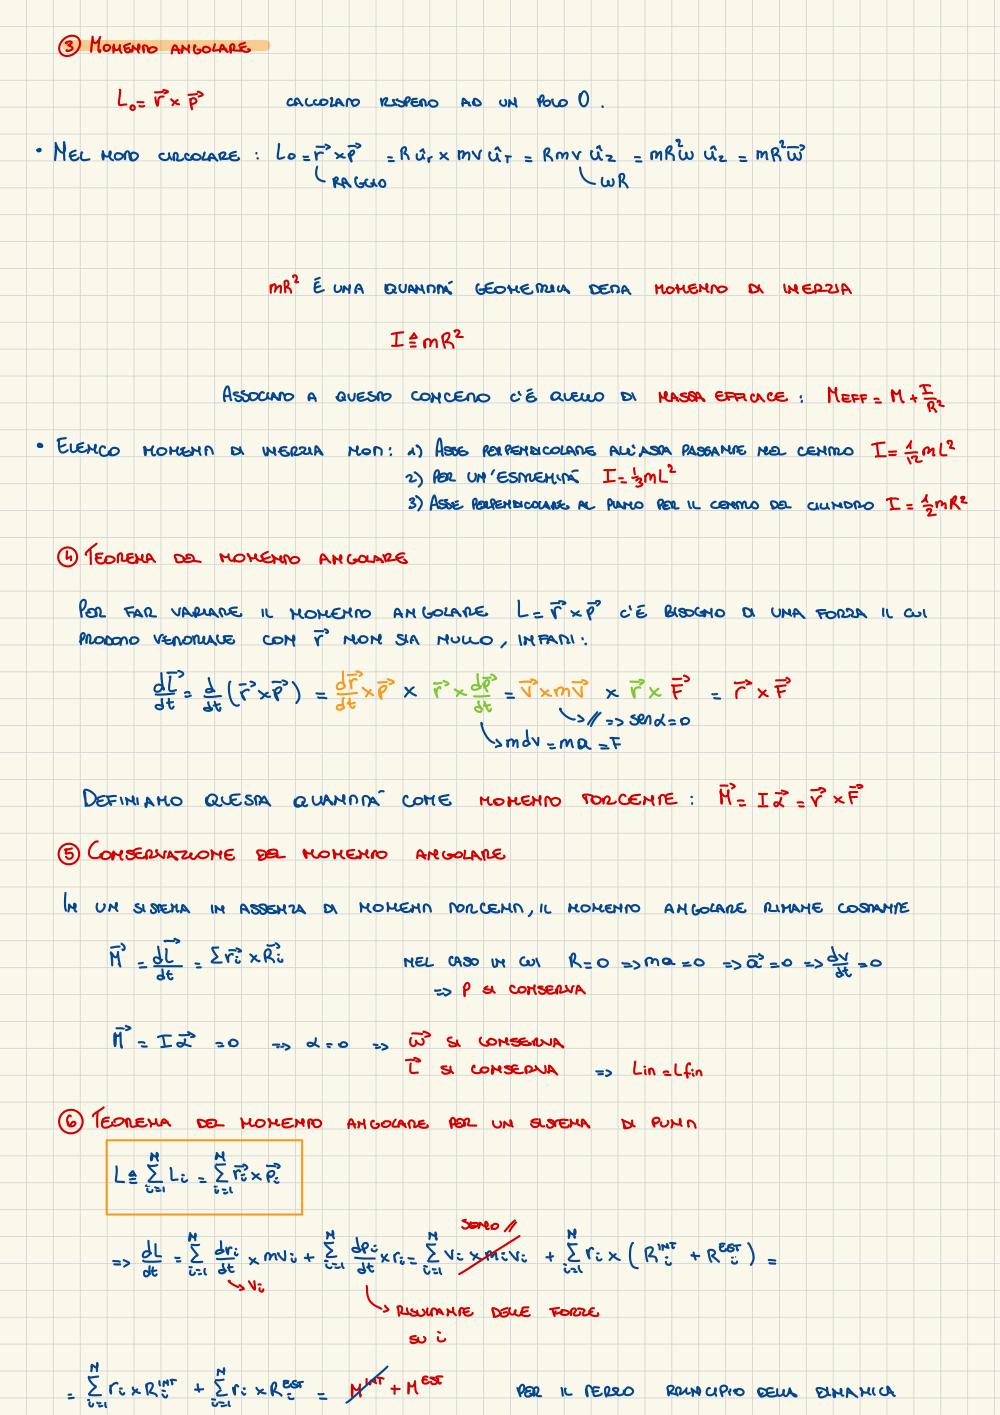 ③ MOMENTO ANGOLARE
L₀ = r⃗ × p⃗ CALCOLATO RISPETTO AD UN POLO O .
• NEL MOTO CIRCOLARE : L₀ = r⃗ × p⃗ = R û_r × mv û_T = Rmv û_z = mR²ω û_z = mR²ω⃗
RAGGIO ωR
mR² È UNA QUANTITÀ GEOMETRICA DETTA MOMENTO DI INERZIA
I ≙ mR²
ASSOCIATO A QUESTO CONCETTO C'È QUELLO DI MASSA EFFICACE : M_EFF = M + I/R²
• ELENCO MOMENTI DI INERZIA NOTI : 1) ASSE PERPENDICOLARE ALL'ASTA PASSANTE NEL CENTRO I = 1/12 mL²
2) PER UN'ESTREMITÀ I = 1/3 mL²
3) ASSE PERPENDICOLARE AL PIANO PER IL CENTRO DEL CILINDRO I = 1/2 mR²
④ TEOREMA DEL MOMENTO ANGOLARE
PER FAR VARIARE IL MOMENTO ANGOLARE L = r⃗ × p⃗ C'È BISOGNO DI UNA FORZA IL CUI
PRODOTTO VETTORIALE CON r⃗ NON SIA NULLO, INFATTI :
dL⃗/dt = d/dt (r⃗ × p⃗) = dr⃗/dt × p⃗ × r⃗ × dp⃗/dt = v⃗ × mv⃗ × r⃗ × F⃗ = r⃗ × F⃗
// => sen α = 0
mdv = ma = F
DEFINIAMO QUESTA QUANTITÀ COME MOMENTO TORCENTE : M⃗ = Iα⃗ = r⃗ × F⃗
⑤ CONSERVAZIONE DEL MOMENTO ANGOLARE
IN UN SISTEMA IN ASSENZA DI MOMENTI TORCENTI, IL MOMENTO ANGOLARE RIMANE COSTANTE
M⃗ = dL⃗/dt = Σ r⃗ᵢ × R⃗ᵢ NEL CASO IN CUI R = 0 => ma = 0 => a⃗ = 0 => dv/dt = 0
=> P SI CONSERVA
M⃗ = Iα⃗ = 0 => α = 0 => ω⃗ SI CONSERVA
L⃗ SI CONSERVA => Lin = Lfin
⑥ TEOREMA DEL MOMENTO ANGOLARE PER UN SISTEMA DI PUNTI
L ≙ Σᵢ₌₁ᴺ Lᵢ = Σᵢ₌₁ᴺ r⃗ᵢ × p⃗ᵢ
SONO //
=> dL/dt = Σᵢ₌₁ᴺ drᵢ/dt × mvᵢ + Σᵢ₌₁ᴺ dpᵢ/dt × rᵢ = Σᵢ₌₁ᴺ vᵢ × mᵢvᵢ + Σᵢ₌₁ᴺ rᵢ × (Rᵢ^INT + Rᵢ^EST) =
vᵢ
RISULTANTE DELLE FORZE
SU i
= Σᵢ₌₁ᴺ rᵢ × Rᵢ^INT + Σᵢ₌₁ᴺ rᵢ × Rᵢ^EST = M^INT + M^EST PER IL TERZO PRINCIPIO DELLA DINAMICA